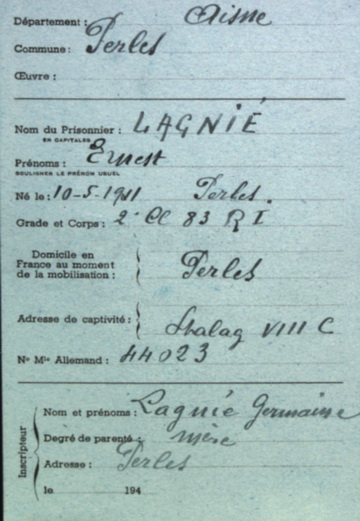 Département : Aisne
Commune : Perles
Œuvre :
Nom du Prisonnier : LAGNIÉ
EN CAPITALES
Prénoms : Ernest
SOULIGNER LE PRÉNOM USUEL
Né le : 10-5-1911 Perles.
Grade et Corps : 2e Cl 83 R I.
Domicile en
France au moment
de la mobilisation : Perles
Adresse de captivité : Stalag VIII C
No Mle Allemand : 44023
Inscripteur
Nom et prénoms : Lagnié Germaine
Degré de parenté : mère
Adresse : Perles
le 194